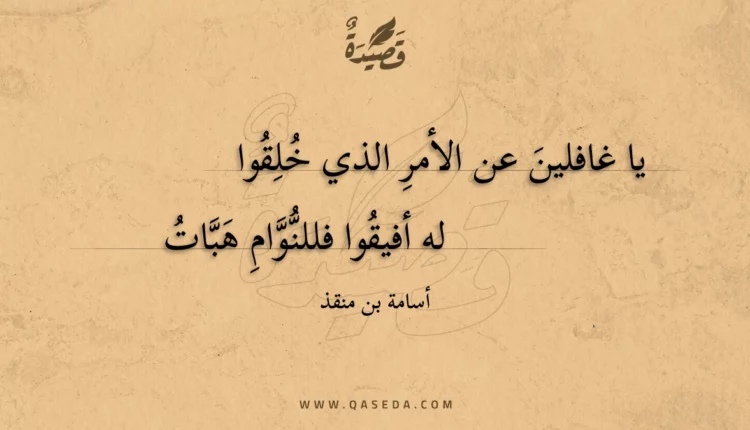 قَصِيْدَةٌ
يا غافلينَ عن الأمرِ الذي خُلِقُوا
له أفيقُوا فللنُّوَّامِ هَبَّاتُ
أسامة بن منقذ
WWW.QASEDA.COM